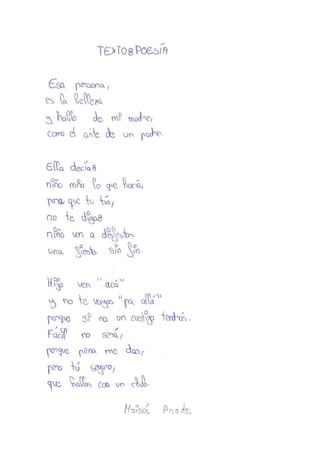 TEXTO 8 POESÍA
Esa persona,
es la belleza
y hablo de mi madre,
como el arte de un padre.
Ella decía
niño mío lo que haría,
para que tu tía,
no te diga
niño ven a disfrutar
una fiesta sin fin.
Hijo ven "acá"
y no te vayas "pa allá"
porque si no un castigo tendrás.
Fácil no será,
porque pena me das,
pero tú seguro,
que hablas con un chulo.
Moisés